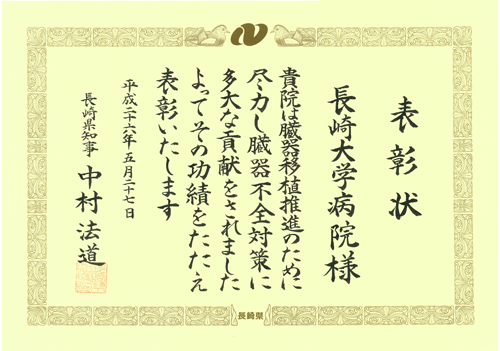 表彰状
長崎大学病院様
貴院は臓器移植推進のために
尽力し臓器不全対策に
多大な貢献をされました
よってその功績をたたえ
表彰いたします
平成二十六年五月二十七日
長崎県知事 中村法道
長崎県